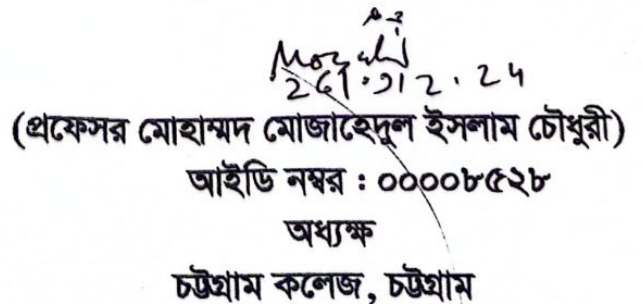 26.12.24
(প্রফেসর মোহাম্মদ মোজাহেদুল ইসলাম চৌধুরী)
আইডি নম্বর : ০০০০৮৫২৮
অধ্যক্ষ
চট্টগ্রাম কলেজ, চট্টগ্রাম